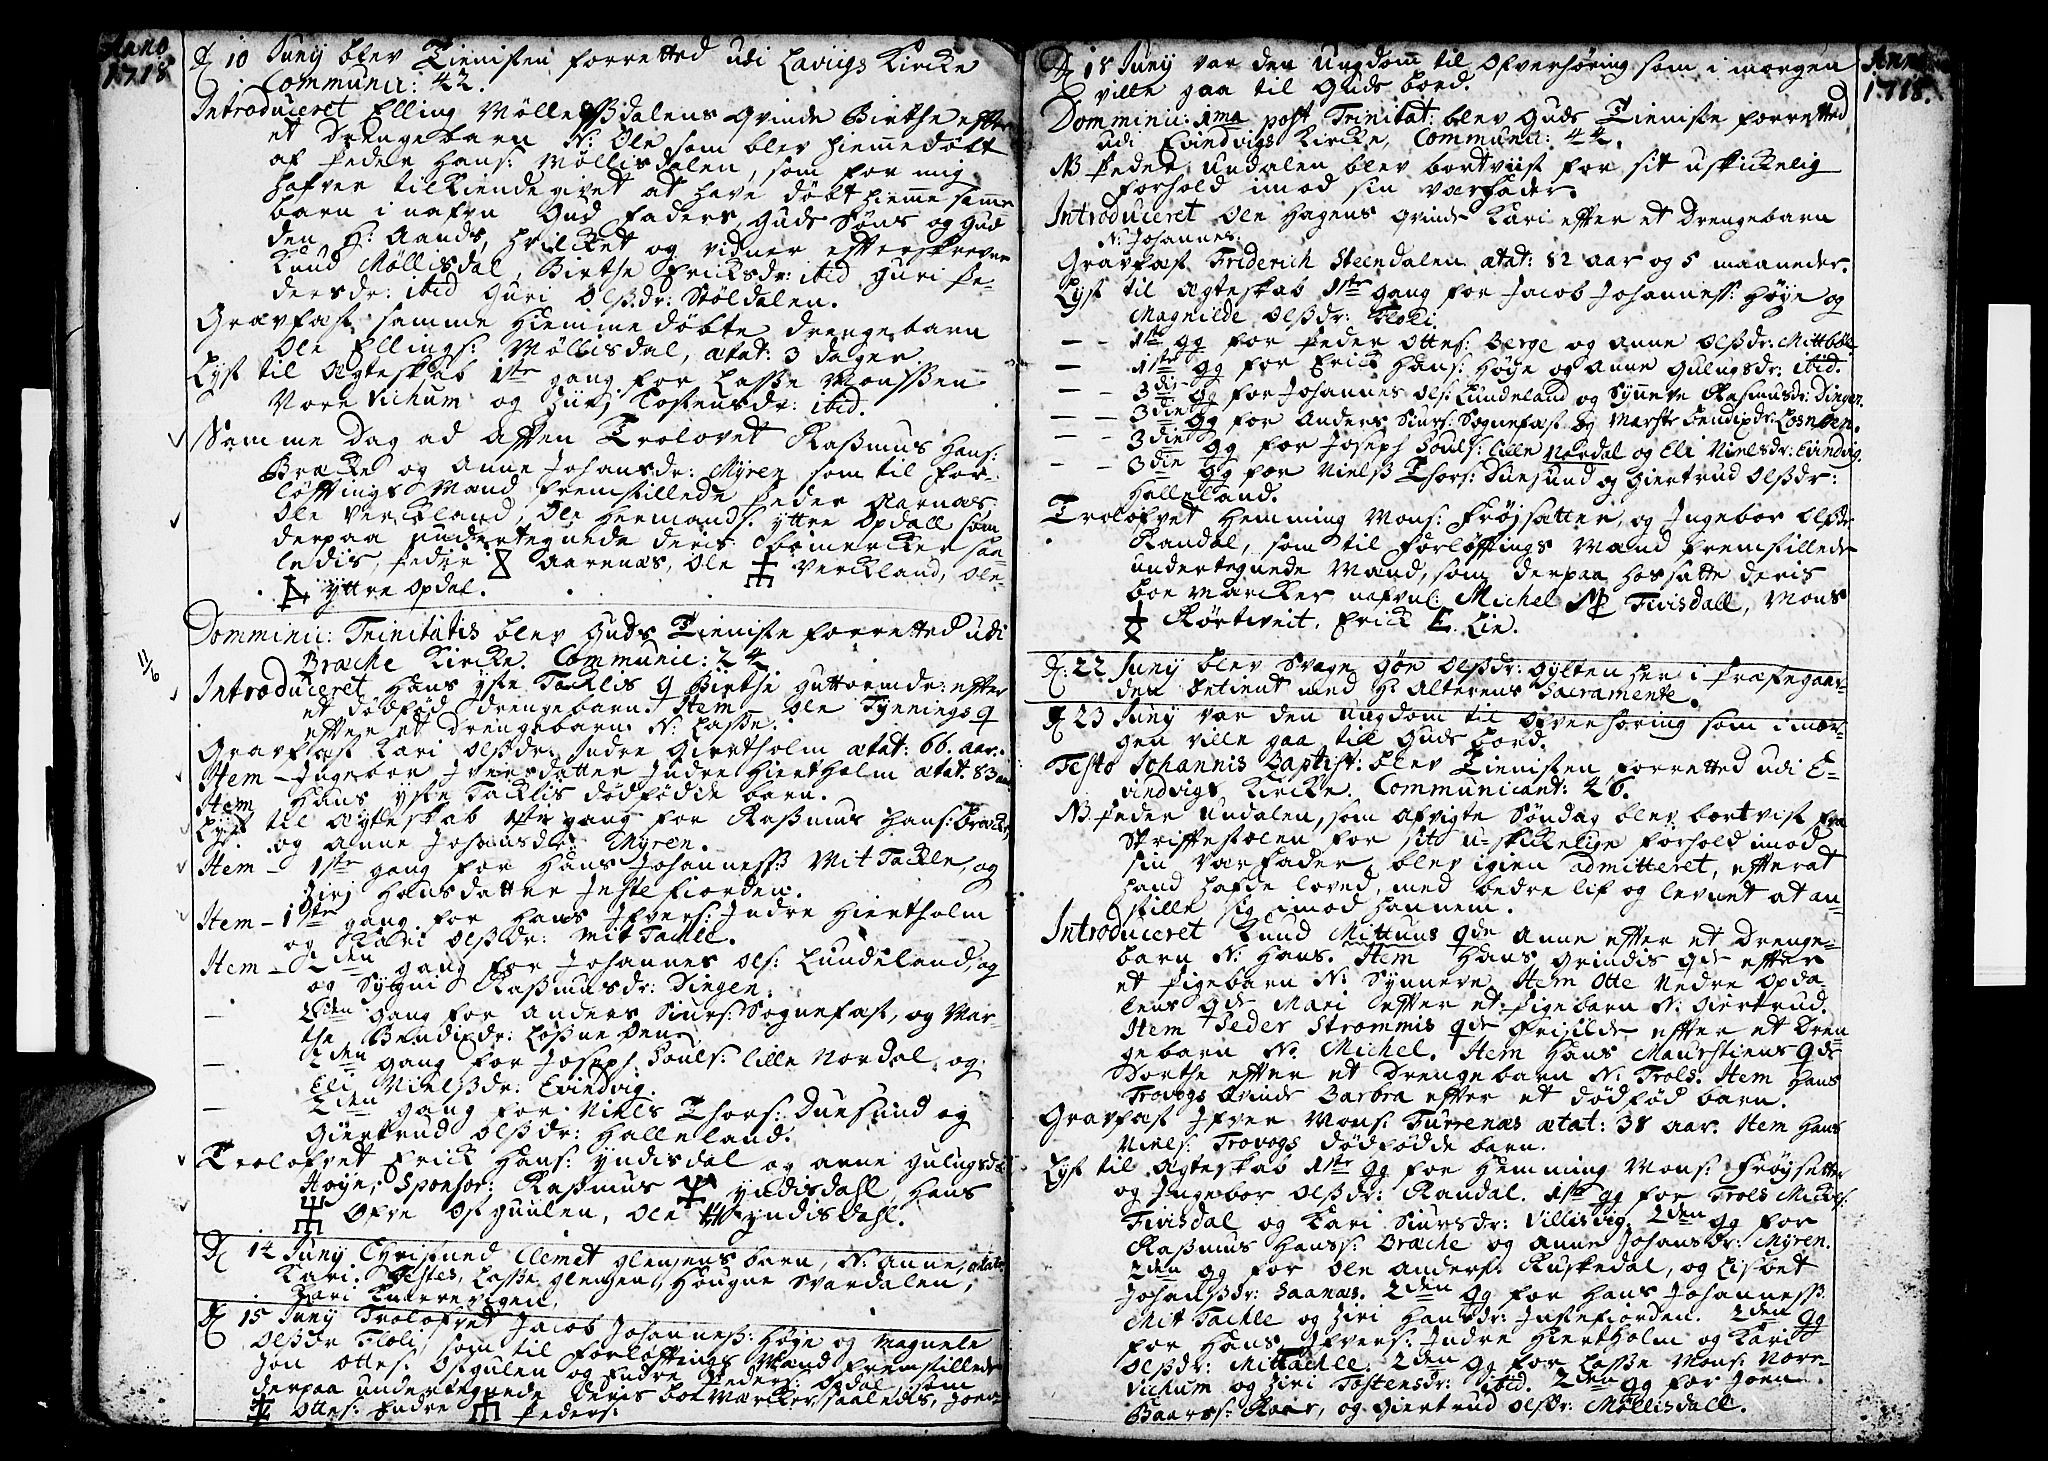 Anno
1718
D 10 Junij blev Tienisten forretted udi Laviigs Kircke
Communic: 42.
Introduceret Elling Mølleßdalens Qvinde Birthe efter
et drengebarn N: Ole som blev hiemmedøbt
af Peder Hans: Møllisdalen, som for mig
hafver tilkiendegivet at have døbt hiemme samme
barn i nafn Gud Faders, Guds Søns og Gud
den H: Aands, hvilcket og vidner efterskrevne
Knud Møllisdal, Birthe Ericksdr: ibid Guri Pe-
dersdr: ibid Guri Olßdr: Støldalen.
Gravfæst samme hiemmedøbte drengebarn
Ole Ellings: Møllisdal, ætat: 3 dager.
Lyst til Ægteskab 1ste gang for Laße Monßen
Nore Vichum og Ziri Tostensdr: ibid.
Samme Dag ad aften Trolovet Raßmus Hans:
Bræcke og Anne Johansdr: Myren som til for-
løftings Mænd fremstillede Peder Aarnæs
Ole Verckland, Ole Hermands: yttre Opdall som
derpaa undertegnede deris bomercker saa-
ledis, Peder Aarenæs, Ole Verckland, Ole
yttre Opdal.
Domminic: Trinitatis blev Guds Tieniste forretted udi
11/6
Bræche Kircke. Communic: 24
Introduceret Hans yste Tacklis Q Birthe Guttormdr: efter
et dødfød drengebarn. Item Ole Tynnings Q
efter et drengebarn N: Laße.
Gravfæst Kari Olßdr: Indre Hiertholm ætat: 66. aar.
Item - Ingebor Iversdatter Indre Hiertholm ætat: 83 aar
Item Hans yste Tacklis dødfødde barn.
Lyst til Ægteskab 1ste gang for Raßmus Hans: Bræcke,
og Anne Johansdr: Myren.
Item - 1ste gang for Hans Johanneß: Mit Tackle, og
Ziri Hansdatter Instefiorden.
Item - 1ste gang for Hans Ifvers: Indre Hiertholm
og Kari Olßdr: Mit Tackle.
Item - 2den gang for Johannes Ols: Lundeland, og
og Sygni Raßmusdr: Dingen.
- 2den gang for Anders Siurs: Sognefæst, og Mar-
the Bendixdr: Loßneden
- 2den gang for Joseph Pouls: lille Nordal, og
Eli Nielßdr: Evindvig.
- 2den gang for Niels Thors: Duesund og
Giertrud Olßdr: Halleland.
Trolofvet Erick Hans: Yndisdal og Anne Gulugsdr
Høyne, Sponsor: Raßmus Yndisdahl, Hans
Ofre Ostgulen, Ole Yndisdahl.
D 14 Junij Christned Clemet Glensens barn, N: Anne,
Kari. Testes, Laße Glensen, Hougne Svardalen,
Kari Knarrevigen.
D 15 Junij Trolofvet Jacob Johanneß: Høye og Magnele
Olßdr Floli, som til forløftings Mænd fremstillede
Jon Ottes: Ostgulen og Endre Peders: Opdal, som
derpaa undertegnede deris bomærcker, saaledis, Jon
Ottes: Endre Peders:
Anno
1718.
D 18 Junij var den Ungdom til Ofverhøring som i morgen
ville gaa til Guds bord.
Domminic: 1ma post Trinitat: blev Guds Tieniste forretted
udi Evindvigs Kircke, Communic: 44.
NB Peder Undalen blev bortviist for sit uskickelig
forhold imod sin Værfader.
Introduceret Ole Hagens Qvinde Kari efter et drengebarn
N: Johannes.
Gravfæst Friderich Steendalen ætat: 82 aar og 5 maaneder.
Lyst til Ægteskab 1ste gang for Jacob Johanneß: Høye og
Magnilde Olßdr: Floli.
- - 1ste gg for Peder Ottes: Berge og Anne Olßdr: Mittbøe
- 1ste gg for Erick Hans: Høye og Anne Gulugsdr: ibid.
- - 3die gg for Johannes Ols: Lundeland og Synneve Rasmusdr: Dingen.
- - 3die gg for Anders Siurs: Sognefæst og Marthe Bendixdr: Losneden.
- 3die gg for Joseph Pouls: lille Nordal og Eli Nielsdr: Evindvig.
- - 3die gg for Nielß Thors: Duesund og Giertrud Olßdr:
Halleland.
Trolofvet Hemming Mons: Frøysætter, og Ingebor Olßdr
Randal, som til forløftings Mænd fremstillede
undertegnede Mænd, som derpaa hossatte deris
bomærcker nafnl: Michel Tivisdall, Mons
Rørtveit, Erick E Lie.
D: 22 Junij blev svage Gøre Olßdr: Gylten her i Præstegaar-
den betient med H: Alterens Sacramente.
D 23 Junij var den Ungdom til Ofverhøring som i mor-
gen ville gaa till Guds bord.
Festo Johannis Baptist: blev Tienisten forretted udi E-
vindvigs Kircke. Communicant: 26.
NB Peder Undalen, som afvigte Søndag blev bortvist fra
Skriftestolen for sit u-skickelige forhold imod
sin Værfader blev igien admitteret, efterat
hand hafde loved, med bedre lif og levnet at an-
stille sig imod hannem.
Introduceret Knud Mittuns Qde Anne efter et drenge-
barn N: Hans. Item Hans Grindis Qde efter
et Pigebarn N: Synneve. Item Otte Nedre Opda-
lens Qde Mari efter et Pigebarn N: Giertrud.
Item Peder Strømmis Qde Friilde efter et dren
gebarn N: Michel. Item Hans Maurstiens Qde
Dorthe efter et drengebarn N: Trols. Item Hans
Trovogs Qvinde Barbra efter et dødfød barn.
Gravfæst Ifver Mons: Furrenæs ætat: 38 aar. Item Hans
Niels: Trovogs dødfødde barn.
Lyst til Ægteskab 1ste gg for Hemming Mons: Frøysetter
og Ingebor Olßdr: Randal. 1ste gg for Trols Mickels:
Tivisdal og Kari Siursdr: Villisvig. 2den gg for
Raßmus Hanss: Bræche og Anne Johansdr: Myren.
2den gg for Ole Anders: Ruskedal, og Lisbet
Johanßdr: Saanæs. 2den gg for Hans Johanneß:
Mit Tackle og Ziri Hansdr: Instefiorden. 2den gg
for Hans Ifvers: Indre Hiertholm og Kari
Olßdr: Mittachle. 2den gg for Laße Mons: Nore-
vichum og Ziri Tostensdr: ibid. 2den gg for Joen
Baars: Raar, og Giertrud Olßdr: Møllisdall.